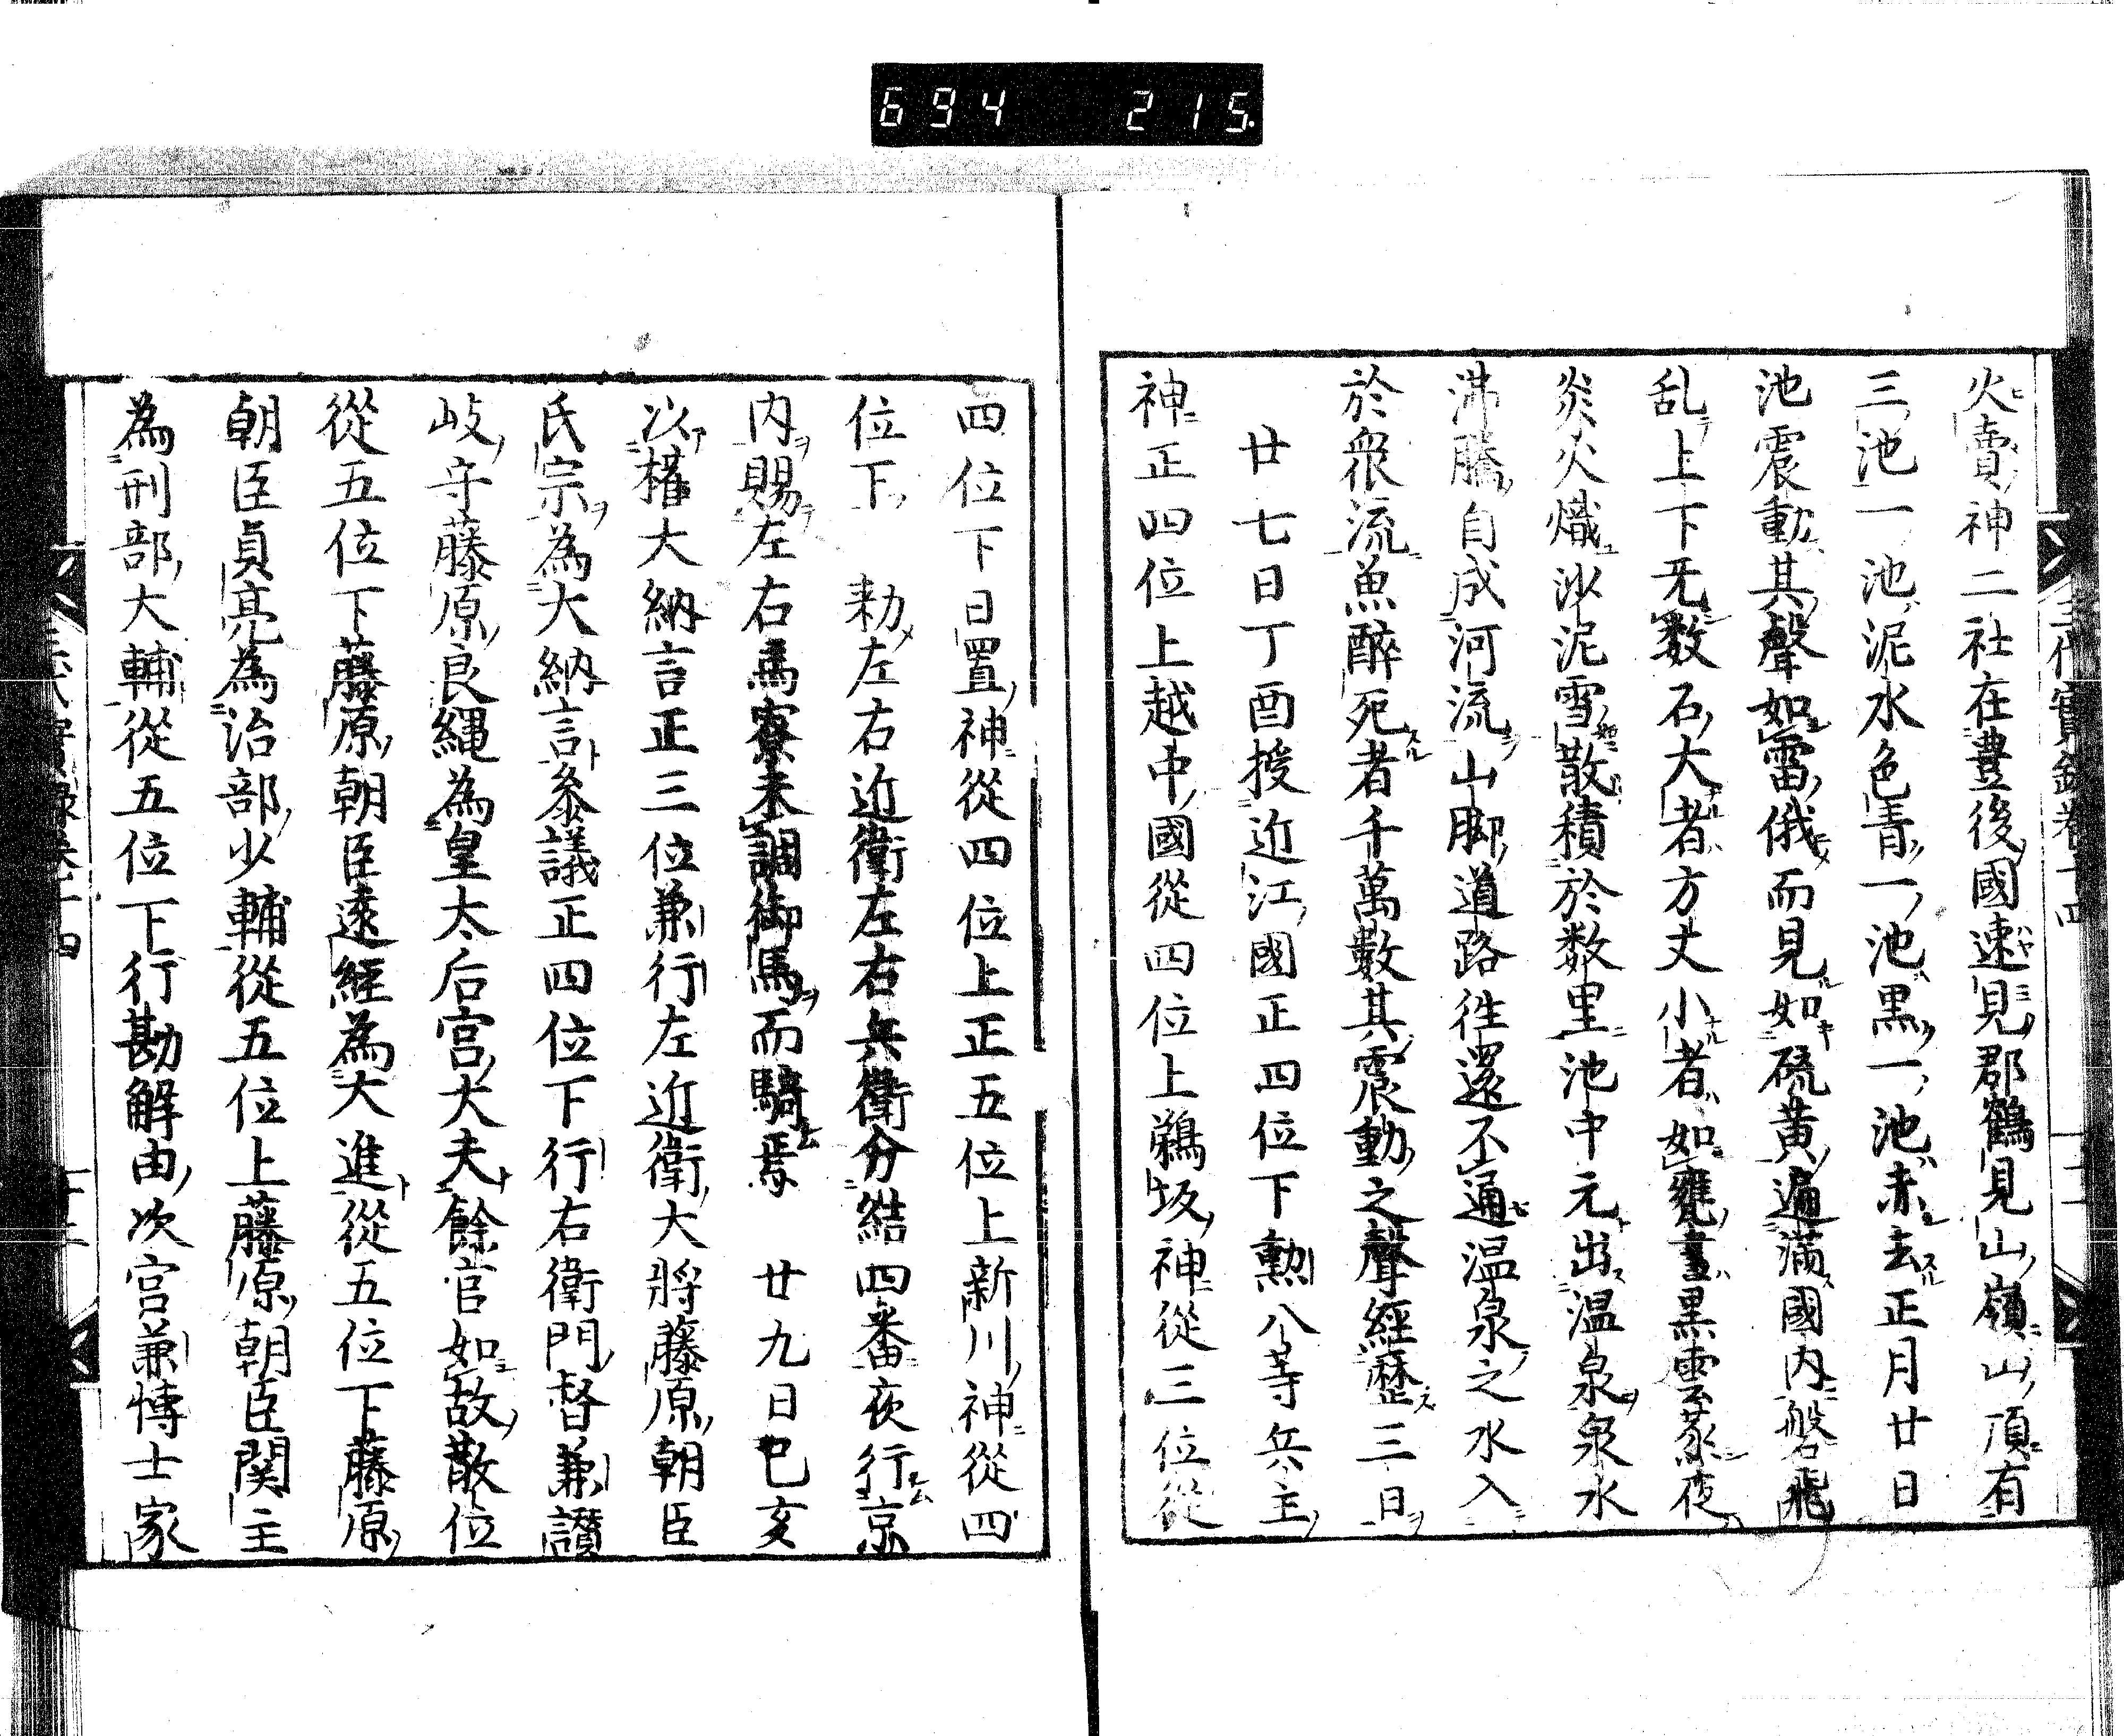 694 215
火賣神二社在豊後國速見郡鶴見山嶺山頂有
三池一池泥水色青一池黒一池赤去正月廿日
池震動其聲如雷俄而見如硫黄遍滿國内磐飛
乱上下无数石大者方丈小者如甕晝黒雲蒸夜
炎火熾沙泥雪散積於数里池中元出温泉泉水
沸騰自成河流山脚道路往還不通温泉之水入
於衆流魚醉死者千萬數其震動之聲經歷三日
廿七日丁酉授近江國正四位下勲八等兵主
神正四位上越中國從四位上鵜坂神從三位從
四位下日置神從四位上正五位上新川神從四
位下　勅左右近衛左右兵衛分結四番夜行京
内賜左右馬寮未調御馬而騎焉　廿九日己亥
以權大納言正三位兼行左近衛大將藤原朝臣
氏宗為大納言叅議正四位下行右衛門督兼讃
岐守藤原良縄為皇太后宮大夫餘官如故散位
從五位下藤原朝臣遠經為大進從五位下藤原
朝臣貞亮為治部少輔從五位上藤原朝臣関主
為刑部大輔從五位下行勘解由次官兼博士家
三代實録卷十四